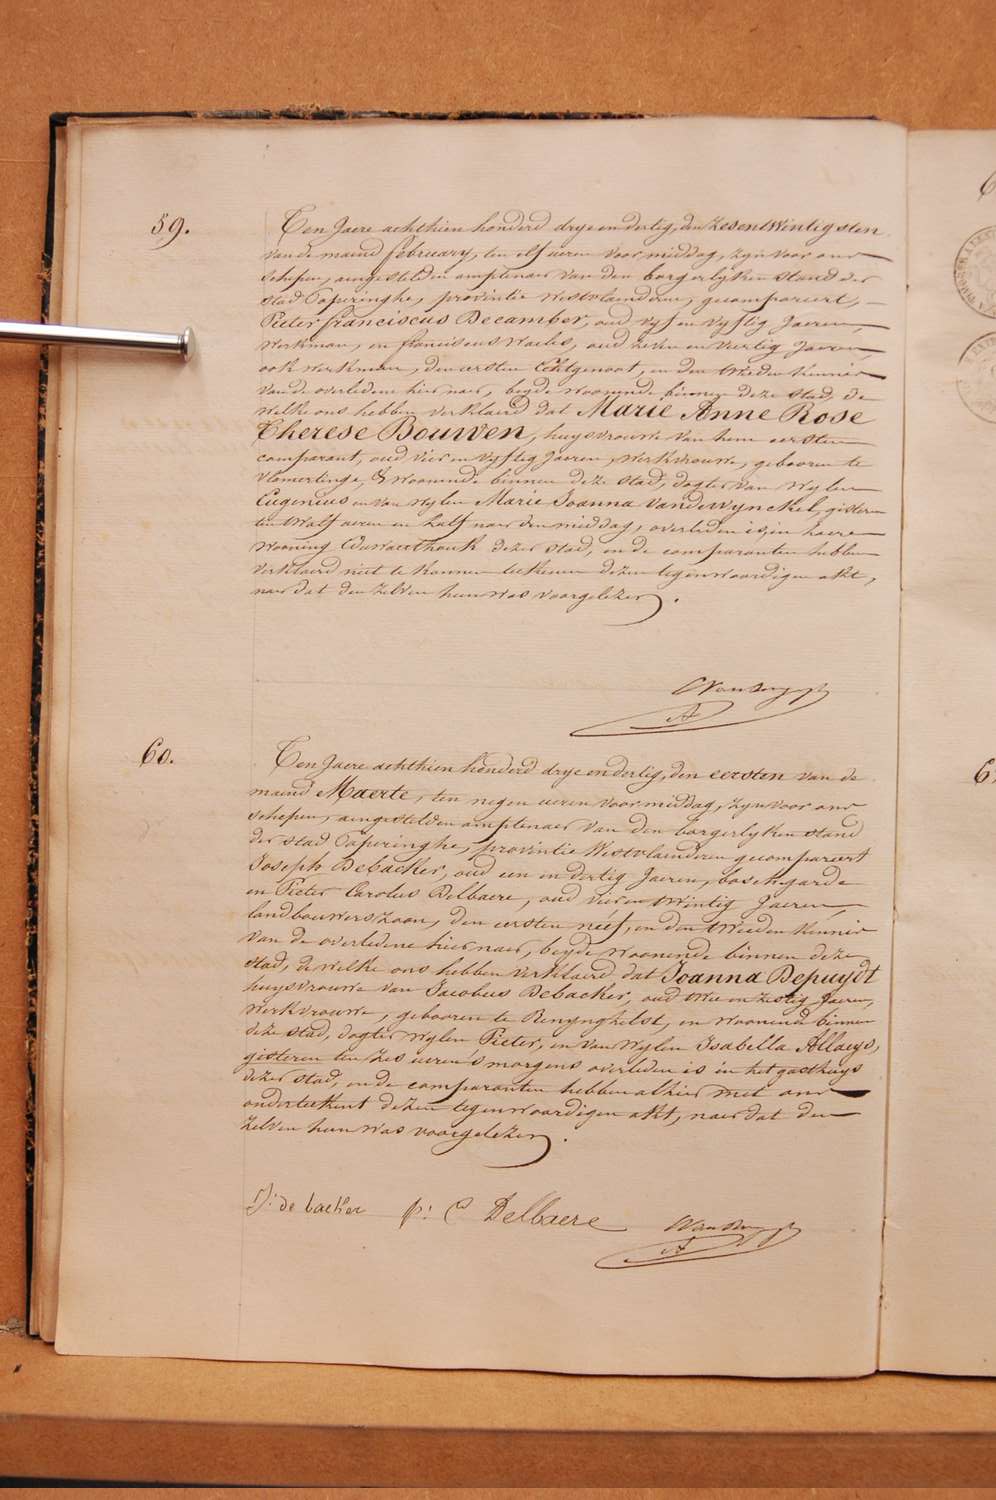 59.
Ten Jaere achthien honderd drye en dertig, den zesentwintigsten
van de maend february, ten elf ueren voormiddag, zyn voor ons
schepen, aengestelden amptenaer van den borgerlyken stand der
stad Poperinghe, provintie Westvlaenderen, gecompareert,
Pieter franciscus Decamber, oud vyf en vyftig Jaeren,
werkman, en franciscus Waels, oud zeven en veertig Jaeren
ook werkman, den eersten Echtgenoot, en den tweeden kennis
van de overledene hier naer, beyde woonende binnen deze stad, de
welke ons hebben verklaerd dat Marie Anne Rose
Therese Bouwen, huysvrouwe van hem eersten
comparant, oud vier en vyftig Jaeren, werkvrouwe, gebooren te
vlamertinge, & woonende binnen deze stad, dogter van wylen
Eugenius en van wylen Marie Joanna Vandewynckel, gisteren
ten twalf ueren en half naer den middag, overleden is, in haere
wooning dezer stad, en de comparanten hebben
verklaerd niet te konnen teekenen dezen tegenwoordigen akt,
naer dat den zelven hun was voorgelezen.
60.
Ten Jaere achthien honderd drye en dertig, den eersten van de
maend Maerte, ten negen ueren voormiddag, zyn voor ons
schepen, aengestelden amptenaer van den borgerlyken stand
der stad Poperinghe, provintie Westvlaenderen gecompareert
Joseph Debacker, oud een en dertig Jaeren, boschgarde
en Pieter Carolus Delbaere, oud vier en twintig Jaeren,
landbouwerszoon, den eersten néef, en den tweeden kennis
van de overledene hier naer, beyde woonende binnen deze
stad, de welke ons hebben verklaerd dat Joanna Depuydt
huysvrouwe van Jacobus Debacker, oud twee en zestig Jaeren,
werkvrouwe, gebooren te Renynghelst, en woonende binnen
deze stad, dogter wylen Pieter, en van wylen Isabella Allaeys,
gisteren ten zes ueren 's morgens overleden is in het gasthuys
dezer stad, en de comparanten hebben alhier met ons
onderteekent dezen tegenwoordigen akt, naer dat den
zelven hun was voorgelezen.
J: de backer p: C Delbaere